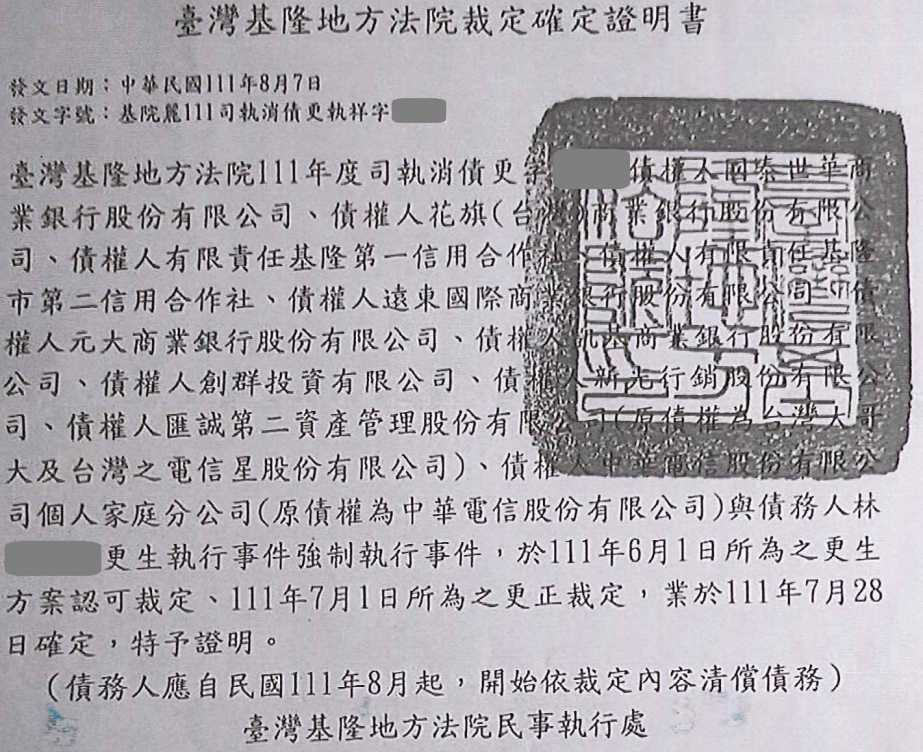 臺灣基隆地方法院裁定確定證明書
發文日期：中華民國111年8月7日
發文字號：基院麗111司執消債更執祥字
臺灣基隆地方法院111年度司執消債更字 債權人國泰世華商
業銀行股份有限公司、債權人花旗(台灣)商業銀行股份有限公
司、債權人有限責任基隆第一信用合作社、債權人有限責任基隆
市第二信用合作社、債權人遠東國際商業銀行股份有限公司、債
權人元大商業銀行股份有限公司、債權人凱基商業銀行股份有限
公司、債權人創群投資有限公司、債權人新光行銷股份有限公
司、債權人匯誠第二資產管理股份有限公司(原債權為台灣大哥
大及台灣之電信星股份有限公司)、債權人中華電信股份有限公
司個人家庭分公司(原債權為中華電信股份有限公司)與債務人林
更生執行事件強制執行事件，於111年6月1日所為之更生
方案認可裁定、111年7月1日所為之更正裁定，業於111年7月28
日確定，特予證明。
（債務人應自民國111年8月起，開始依裁定內容清償債務）
臺灣基隆地方法院民事執行處